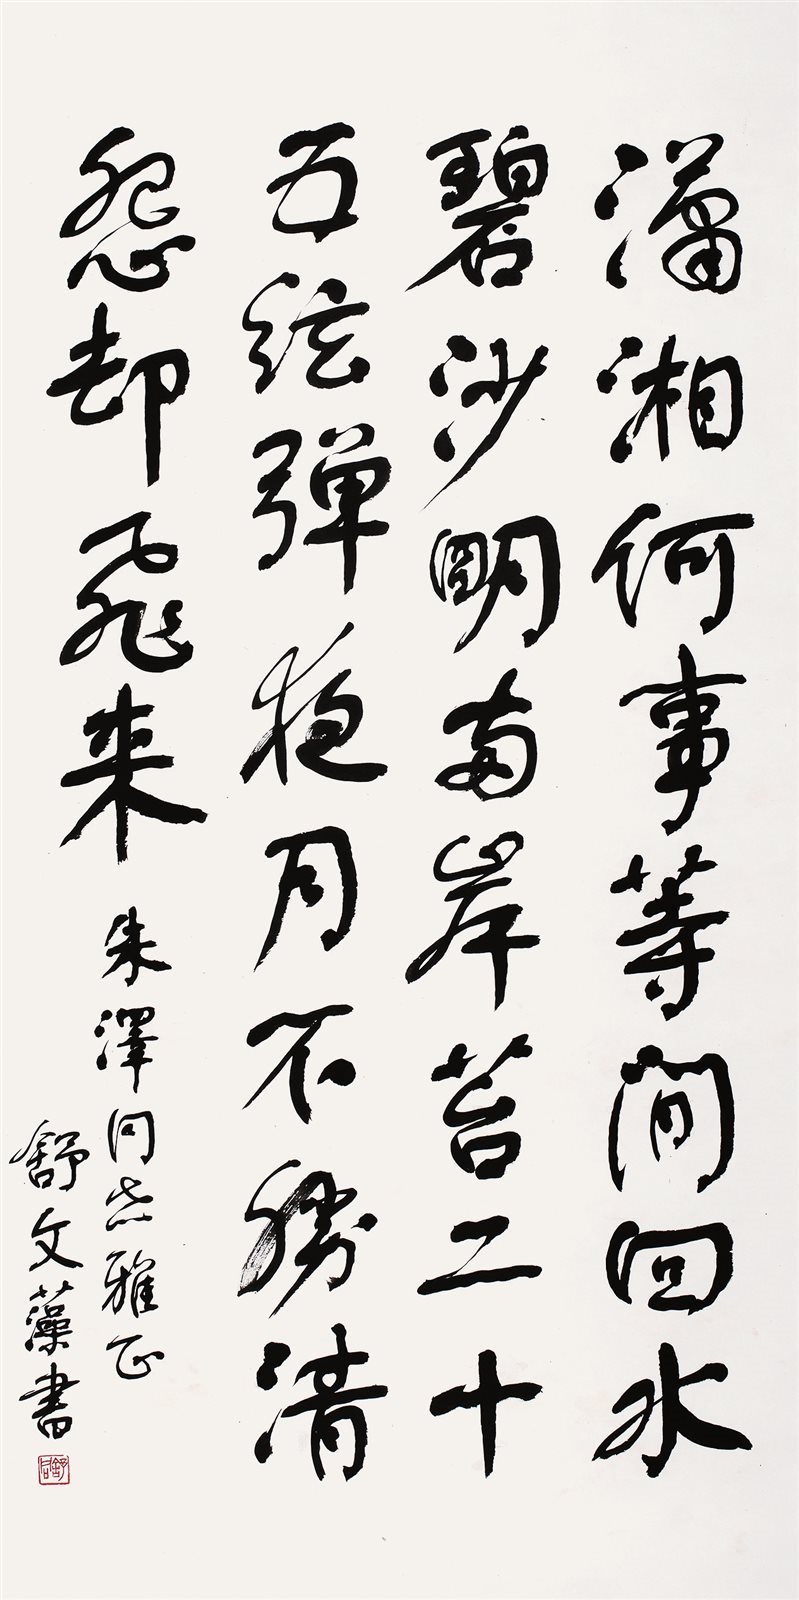 瀟湘何事等閒回水
碧沙明两岸苔二十
五絃弹夜月不勝清
怨却飛来 朱澤同志雅正
舒文藻書